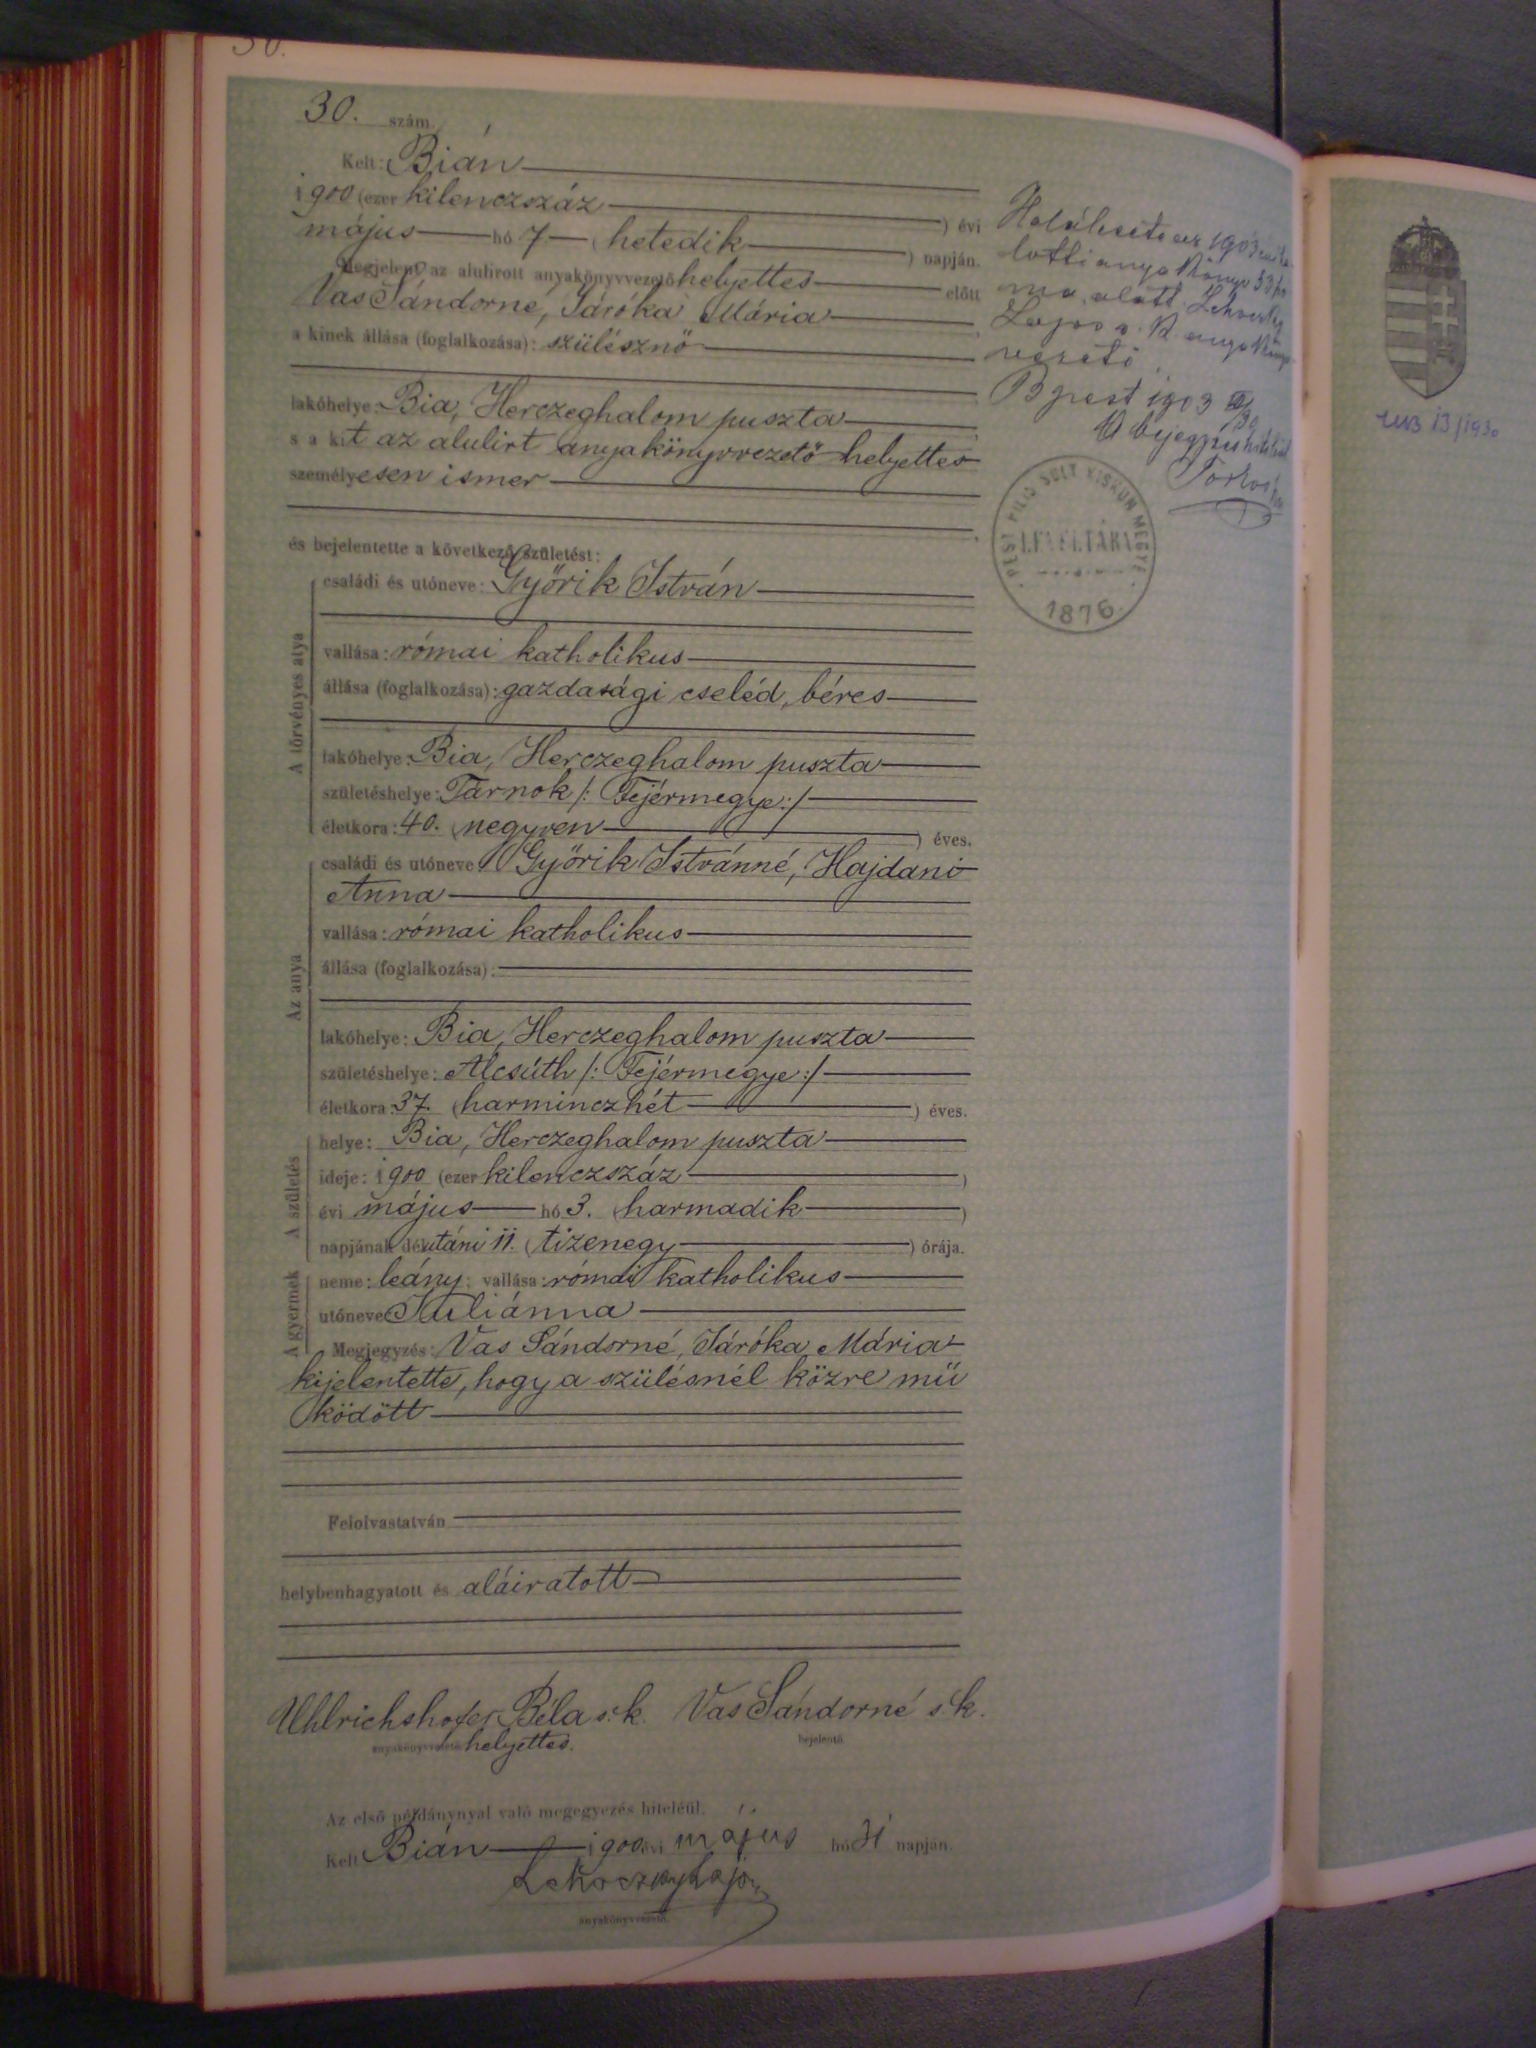 30.
30. szám.
Kelt: Bián
1900 (ezer kilenczszáz ) évi
május hó 7 ( hetedik ) napján.
Megjelent az alulirott anyakönyvvezető helyettes előtt
Vas Sándorné, Járóka Mária
a kinek állása (foglalkozása): szülésznő
lakóhelye: Bia, Herczeghalom puszta
s a kit az alulirt anyakönyvvezető helyettes
személyesen ismer
és bejelentette a következő születést:
A törvényes atya
családi és utóneve: Győrik István
vallása: római katholikus
állása (foglalkozása): gazdasági cseléd, béres
lakóhelye: Bia, Herczeghalom puszta
születéshelye: Tárnok /: Fejérmegye :/
életkora: 40. (negyven ) éves.
Az anya
családi és utóneve Győrik Istvánné, Hajdani
Anna
vallása: római katholikus
állása (foglalkozása):
lakóhelye: Bia, Herczeghalom puszta
születéshelye: Alcsúth /: Fejérmegye :/
életkora: 37. (harminczhét ) éves.
A születés
helye: Bia, Herczeghalom puszta
ideje: 1900 (ezer kilenczszáz )
évi május hó 3. (harmadik )
napjának délutáni 11. (tizenegy ) órája.
A gyermek
neme: leány; vallása: római katholikus
utóneve Juliánna
Megjegyzés: Vas Sándorné, Járóka Mária
kijelentette, hogy a szülésnél közre mü
ködött
Felolvastatván
helybenhagyatott és aláiratott
Uhlrichshofer Béla s. k. Vas Sándorné s. k.
anyakönyvvezető helyettes. bejelentő
Az első példánynyal való megegyezés hiteléül.
Kelt Bián 1900 évi május hó 31 napján.
Lehoczky Lajos
anyakönyvvezető.
az 1903
lotti anyakönyv 53
alatt. Lehoczky
Lajos s. k. anyakönyv
vezető.
Bpest 1903
A bejegyzés
PEST PILIS SOLT KISKUN MEGYE
LEVÉLTÁRA
1876
13/1930